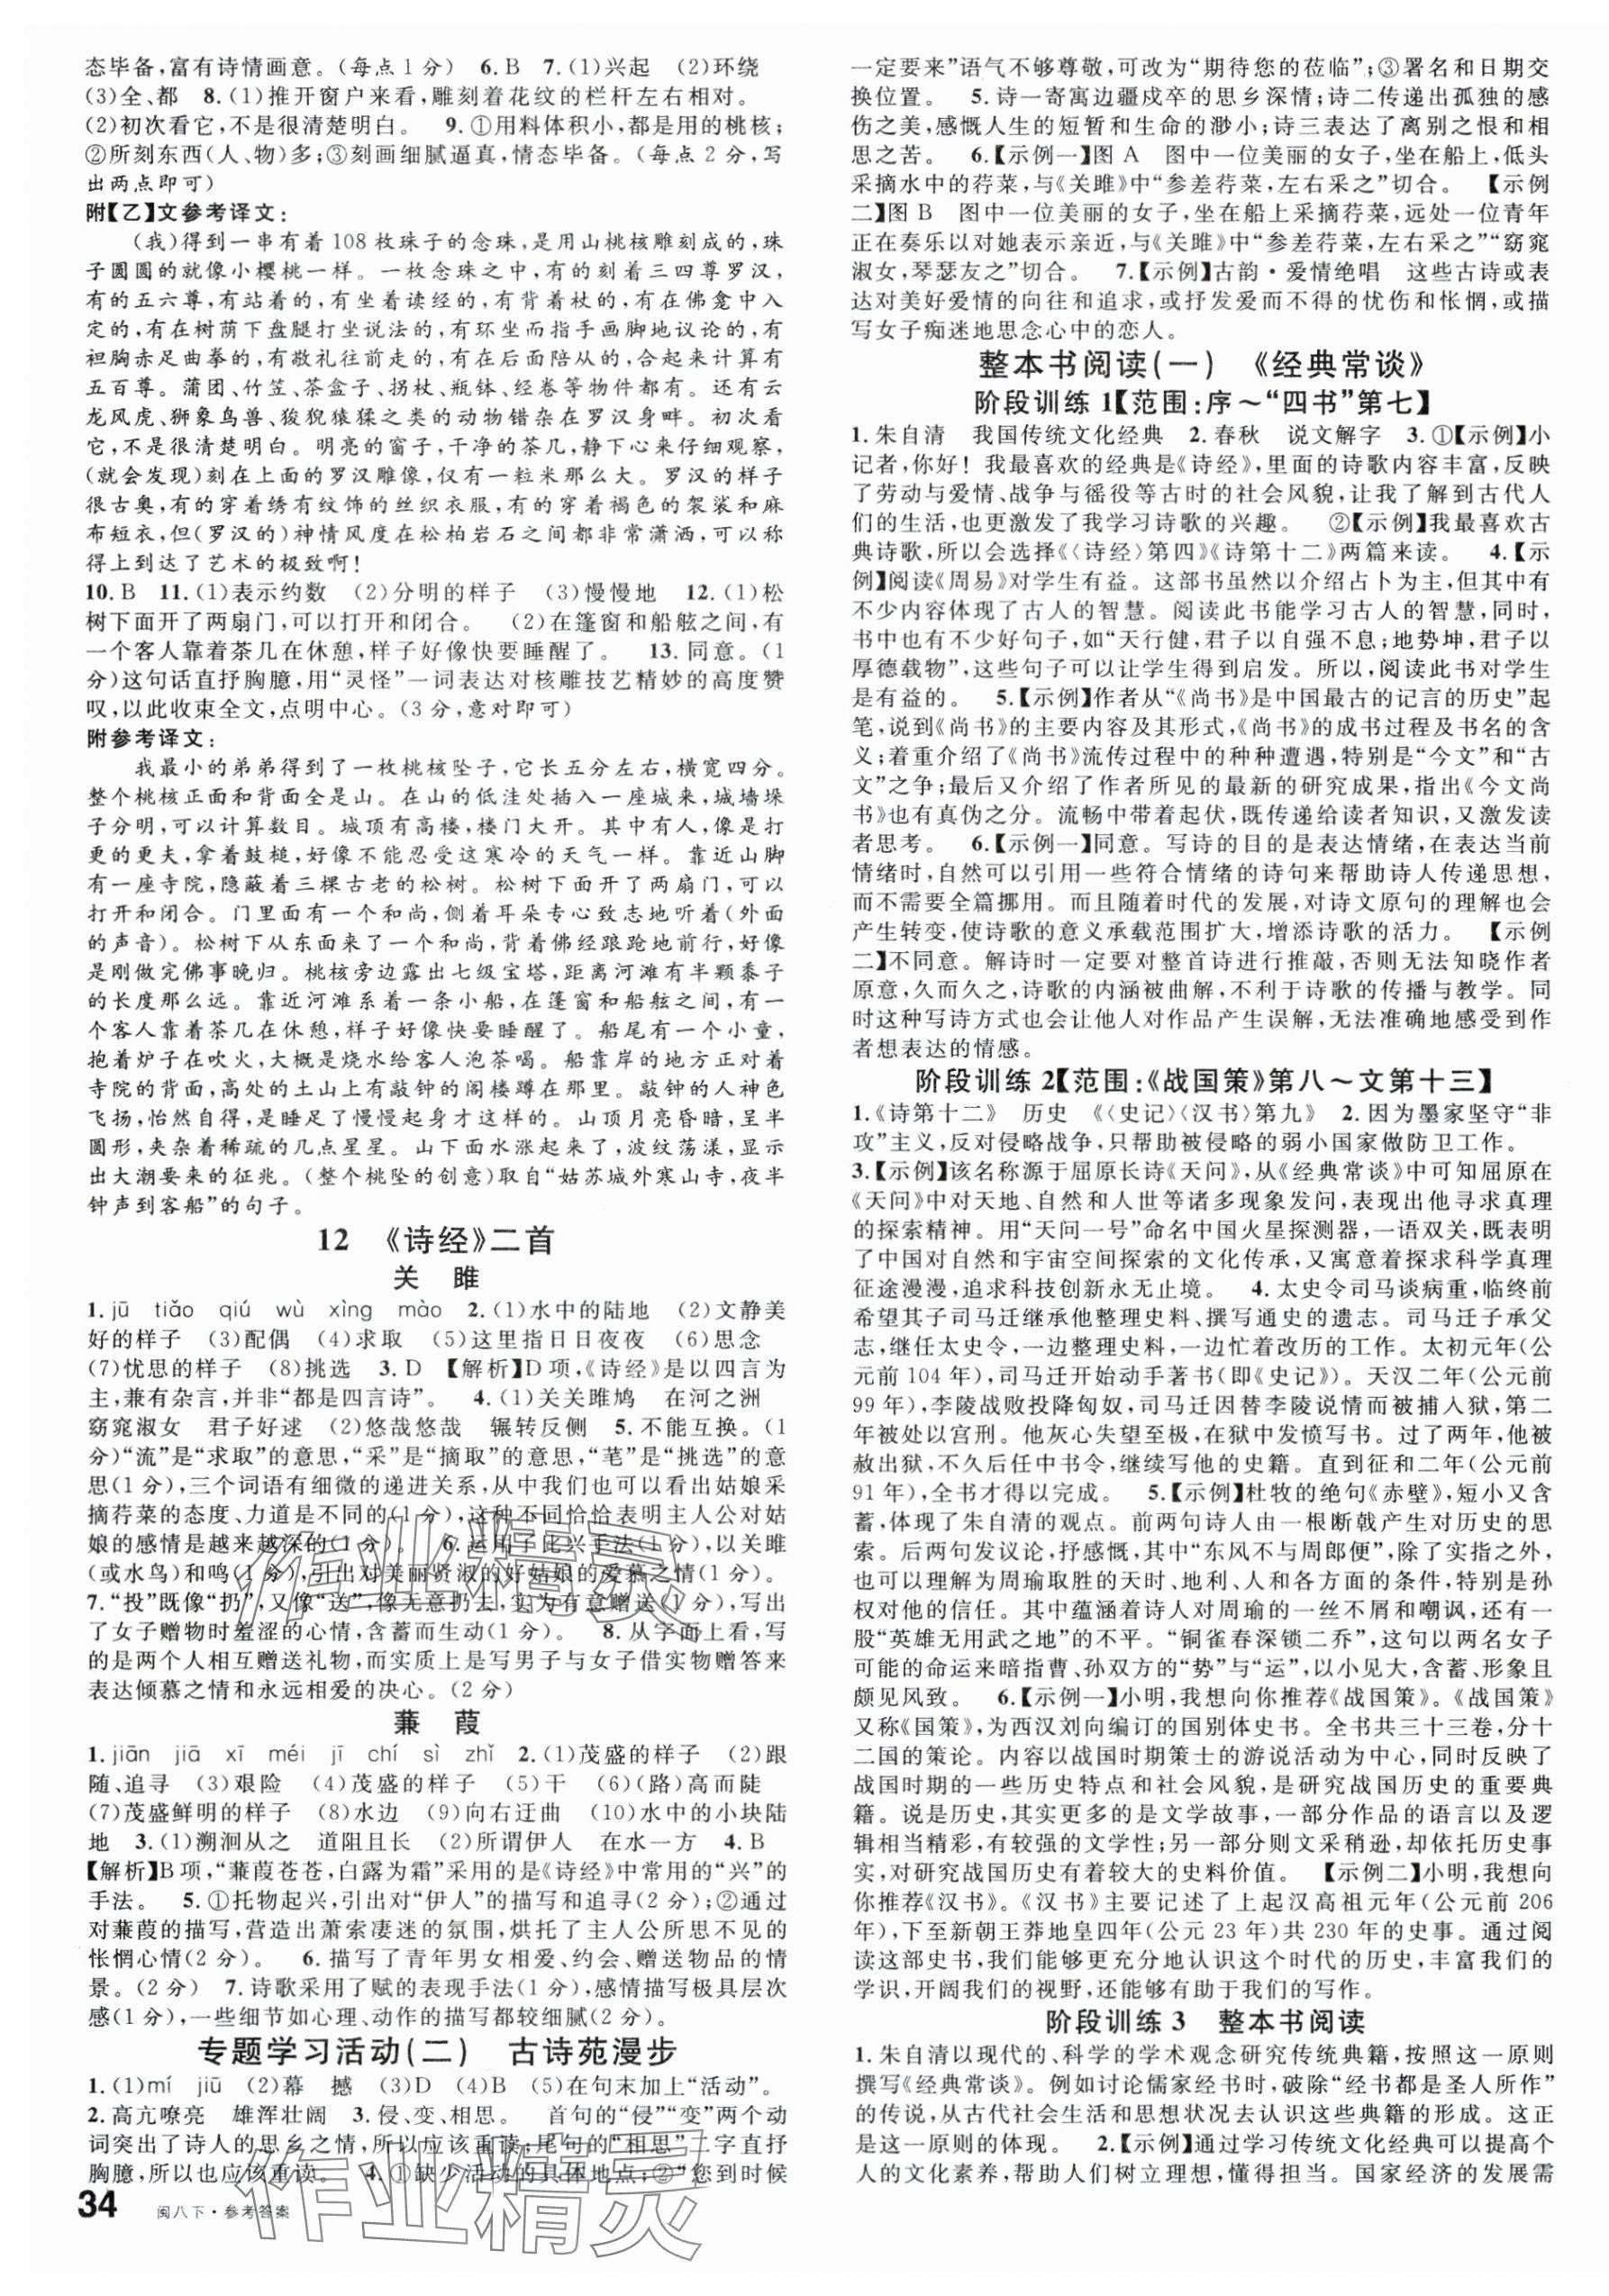 态毕备,富有诗情画意。(每点1分)　6.B　7.(1)兴起　(2)环绕
(3)全、都　8.(1)推开窗户来看,雕刻着花纹的栏杆左右相对。
(2)初次看它,不是很清楚明白。　9.①用料体积小,都是用的桃核;
②所刻东西(人、物)多;③刻画细腻逼真,情态毕备。(每点2分,写
出两点即可)
附【乙】文参考译文:
(我)得到一串有着108枚珠子的念珠,是用山桃核雕刻成的,珠
子圆圆的就像小樱桃一样。一枚念珠之中,有的刻着三四尊罗汉,
有的五六尊,有站着的,有坐着读经的,有背着杖的,有在佛龛中入
定的,有在树荫下盘腿打坐说法的,有环坐而指手画脚地议论的,有
袒胸赤足曲拳的,有敬礼往前走的,有在后面陪从的,合起来计算有
五百尊。蒲团、竹笠、茶盒子、拐杖、瓶钵、经卷等物件都有。还有云
龙风虎、狮象鸟兽、狻猊猿猱之类的动物错杂在罗汉身畔。初次看
它,不是很清楚明白。明亮的窗子,干净的茶几,静下心来仔细观察,
(就会发现)刻在上面的罗汉雕像,仅有一粒米那么大。罗汉的样子
很古奥,有的穿着绣有纹饰的丝织衣服,有的穿着褐色的袈裟和麻
布短衣,但(罗汉的)神情风度在松柏岩石之间都非常潇洒,可以称
得上到达了艺术的极致啊!
10.B　11.(1)表示约数　(2)分明的样子　(3)慢慢地　12.(1)松
树下面开了两扇门,可以打开和闭合。　(2)在篷窗和船舷之间,有
一个客人靠着茶几在休憩,样子好像快要睡醒了。　13.同意。(1
分)这句话直抒胸臆,用“灵怪”一词表达对核雕技艺精妙的高度赞
叹,以此收束全文,点明中心。(3分,意对即可)
附参考译文:
我最小的弟弟得到了一枚桃核坠子,它长五分左右,横宽四分。
整个桃核正面和背面全是山。在山的低洼处插入一座城来,城墙垛
子分明,可以计算数目。城顶有高楼,楼门大开。其中有人,像是打
更的更夫,拿着鼓槌,好像不能忍受这寒冷的天气一样。靠近山脚
有一座寺院,隐蔽着三棵古老的松树。松树下面开了两扇门,可以
打开和闭合。门里面有一个和尚,侧着耳朵专心致志地听着(外面
的声音)。松树下从东面来了一个和尚,背着佛经踉跄地前行,好像
是刚做完佛事晚归。桃核旁边露出七级宝塔,距离河滩有半颗黍子
的长度那么远。靠近河滩系着一条小船,在篷窗和船舷之间,有一
个客人靠着茶几在休憩,样子好像快要睡醒了。船尾有一个小童,
抱着炉子在吹火,大概是烧水给客人泡茶喝。船靠岸的地方正对着
寺院的背面,高处的土山上有敲钟的阁楼蹲在那里。敲钟的人神色
飞扬,怡然自得,是睡足了慢慢起身才这样的。山顶月亮昏暗,呈半
圆形,夹杂着稀疏的几点星星。山下面水涨起来,波纹荡漾,显示
出大潮要来的征兆。(整个桃坠的创意)取自“姑苏城外寒山寺,夜半
钟声到客船”的句子。
12　《诗经》二首
关　雎
1.jū　tiǎo　qiú　wù　xìng　mào　2.(1)水中的陆地　(2)文静美
好的样子　(3)配偶　(4)求取　(5)这里指日日夜夜　(6)思念
(7)忧思的样子　(8)挑选　3.D　【解析】D项,《诗经》是以四言为
主,兼有杂言,并非“都是四言诗”。　4.(1)关关雎鸠　在河之洲
窈窕淑女　君子好逑　(2)悠哉悠哉　辗转反侧　5.不能互换。(1
分)“流”是“求取”的意思,“采”是“摘取”的意思,“芼”是“挑选”的意
思(1分),三个词语有细微的递进关系,从中我们也可以看出姑娘采
摘荇菜的态度、力道是不同的(1分),这种不同恰恰表明主人公对姑
娘的感情是越来越深的(1分)。　6.运用了比兴手法(1分),以关雎
(或水鸟)和鸣(1分),引出对美丽贤淑的好姑娘的爱慕之情(1分)。
7.“投”既像“扔”,又像“送”,像无意扔去,实为有意赠送(1分),写出
了女子赠物时羞涩的心情,含蓄而生动(1分)。　8.从字面上看,写
的是两个人相互赠送礼物,而实质上是写男子与女子借实物赠答来
表达倾慕之情和永远相爱的决心。(2分)
蒹　葭
1.jiān　jiā　xī　méi　jī　chí　sì　zhǐ　2.(1)茂盛的样子　(2)跟
随、追寻　(3)艰险　(4)茂盛的样子　(5)干　(6)(路)高而陡
(7)茂盛鲜明的样子　(8)水边　(9)向右迂曲　(10)水中的小块陆
地　3.(1)溯洄从之　道阻且长　(2)所谓伊人　在水一方　4.B
【解析】B项,“蒹葭苍苍,白露为霜”采用的是《诗经》中常用的“兴”的
手法。　5.①托物起兴,引出对“伊人”的描写和追寻(2分);②通过
对蒹葭的描写,营造出萧索凄迷的氛围,烘托了主人公所思不见的
怅惘心情(2分)。　6.描写了青年男女相爱、约会、赠送物品的情
景。(2分)　7.诗歌采用了赋的表现手法(1分),感情描写极具层次
感(1分),一些细节如心理、动作的描写都较细腻(2分)。
专题学习活动(二)　古诗苑漫步
1.(1)mí　jiū　(2)幕　撼　(3)D　(4)B　(5)在句末加上“活动”。
2.高亢嘹亮　雄浑壮阔　3.侵、变、相思。　首句的“侵”“变”两个动
词突出了诗人的思乡之情,所以应该重读;尾句的“相思”二字直抒
胸臆,所以也应该重读。　4.①缺少活动的具体地点;②“您到时候
34　闽八下·参考答案
一定要来”语气不够尊敬,可改为“期待您的莅临”;③署名和日期交
换位置。　5.诗一寄寓边疆戍卒的思乡深情;诗二传递出孤独的感
伤之美,感慨人生的短暂和生命的渺小;诗三表达了离别之恨和相
思之苦。　6.【示例一】图A　图中一位美丽的女子,坐在船上,低头
采摘水中的荇菜,与《关雎》中“参差荇菜,左右采之”切合。　【示例
二】图B　图中一位美丽的女子,坐在船上采摘荇菜,远处一位青年
正在奏乐以对她表示亲近,与《关雎》中“参差荇菜,左右采之”“窈窕
淑女,琴瑟友之”切合。　7.【示例】古韵·爱情绝唱　这些古诗或表
达对美好爱情的向往和追求,或抒发爱而不得的忧伤和怅惘,或描
写女子痴迷地思念心中的恋人。
整本书阅读(一)　《经典常谈》
阶段训练1【范围:序～“四书”第七】
1.朱自清　我国传统文化经典　2.春秋　说文解字　3.①【示例】小
记者,你好!我最喜欢的经典是《诗经》,里面的诗歌内容丰富,反映
了劳动与爱情、战争与徭役等古时的社会风貌,让我了解到古代人
们的生活,也更激发了我学习诗歌的兴趣。　②【示例】我最喜欢古
典诗歌,所以会选择《〈诗经〉第四》《诗第十二》两篇来读。　4.【示
例】阅读《周易》对学生有益。这部书虽然以介绍占卜为主,但其中有
不少内容体现了古人的智慧。阅读此书能学习古人的智慧,同时,
书中也有不少好句子,如“天行健,君子以自强不息;地势坤,君子以
厚德载物”,这些句子可以让学生得到启发。所以,阅读此书对学生
是有益的。　5.【示例】作者从“《尚书》是中国最古的记言的历史”起
笔,说到《尚书》的主要内容及其形式,《尚书》的成书过程及书名的含
义;着重介绍了《尚书》流传过程中的种种遭遇,特别是“今文”和“古
文”之争;最后又介绍了作者所见的最新的研究成果,指出《今文尚
书》也有真伪之分。流畅中带着起伏,既传递给读者知识,又激发读
者思考。　6.【示例一】同意。写诗的目的是表达情绪,在表达当前
情绪时,自然可以引用一些符合情绪的诗句来帮助诗人传递思想,
而不需要全篇挪用。而且随着时代的发展,对诗文原句的理解也会
产生转变,使诗歌的意义承载范围扩大,增添诗歌的活力。　【示例
二】不同意。解诗时一定要对整首诗进行推敲,否则无法知晓作者
原意,久而久之,诗歌的内涵被曲解,不利于诗歌的传播与教学。同
时这种写诗方式也会让他人对作品产生误解,无法准确地感受到作
者想表达的情感。
阶段训练2【范围:《战国策》第八～文第十三】
1.《诗第十二》　历史　《〈史记〉〈汉书〉第九》　2.因为墨家坚守“非
攻”主义,反对侵略战争,只帮助被侵略的弱小国家做防卫工作。
3.【示例】该名称源于屈原长诗《天问》,从《经典常谈》中可知屈原在
《天问》中对天地、自然和人世等诸多现象发问,表现出他寻求真理
的探索精神。用“天问一号”命名中国火星探测器,一语双关,既表明
了中国对自然和宇宙空间探索的文化传承,又寓意着探求科学真理
征途漫漫,追求科技创新永无止境。　4.太史令司马谈病重,临终前
希望其子司马迁继承他整理史料、撰写通史的遗志。司马迁子承父
志,继任太史令,一边整理史料,一边忙着改历的工作。太初元年(公
元前104年),司马迁开始动手著书(即《史记》)。天汉二年(公元前
99年),李陵战败投降匈奴,司马迁因替李陵说情而被捕入狱,第二
年被处以宫刑。他灰心失望至极,在狱中发愤写书。过了两年,他被
赦出狱,不久后任中书令,继续写他的史籍。直到征和二年(公元前
91年),全书才得以完成。　5.【示例】杜牧的绝句《赤壁》,短小又含
蓄,体现了朱自清的观点。前两句诗人由一根断戟产生对历史的思
索。后两句发议论,抒感慨,其中“东风不与周郎便”,除了实指之外,
也可以理解为周瑜取胜的天时、地利、人和各方面的条件,特别是孙
权对他的信任。其中蕴涵着诗人对周瑜的一丝不屑和嘲讽,还有一
股“英雄无用武之地”的不平。“铜雀春深锁二乔”,这句以两名女子
可能的命运来暗指曹、孙双方的“势”与“运”,以小见大,含蓄、形象且
颇见风致。　6.【示例一】小明,我想向你推荐《战国策》。《战国策》
又称《国策》,为西汉刘向编订的国别体史书。全书共三十三卷,分十
二国的策论。内容以战国时期策士的游说活动为中心,同时反映了
战国时期的一些历史特点和社会风貌,是研究战国历史的重要典
籍。说是历史,其实更多的是文学故事,一部分作品的语言以及逻
辑相当精彩,有较强的文学性;另一部分则文采稍逊,却依托历史事
实,对研究战国历史有着较大的史料价值。　【示例二】小明,我想向
你推荐《汉书》。《汉书》主要记述了上起汉高祖元年(公元前206
年),下至新朝王莽地皇四年(公元23年)共230年的史事。通过阅
读这部史书,我们能够更充分地认识这个时代的历史,丰富我们的
学识,开阔我们的视野,还能够有助于我们的写作。
阶段训练3　整本书阅读
1.朱自清以现代的、科学的学术观念研究传统典籍,按照这一原则
撰写《经典常谈》。例如讨论儒家经书时,破除“经书都是圣人所作”
的传说,从古代社会生活和思想状况去认识这些典籍的形成。这正
是这一原则的体现。　2.【示例】通过学习传统文化经典可以提高个
人的文化素养,帮助人们树立理想,懂得担当。国家经济的发展需
作业精灵
作业精灵